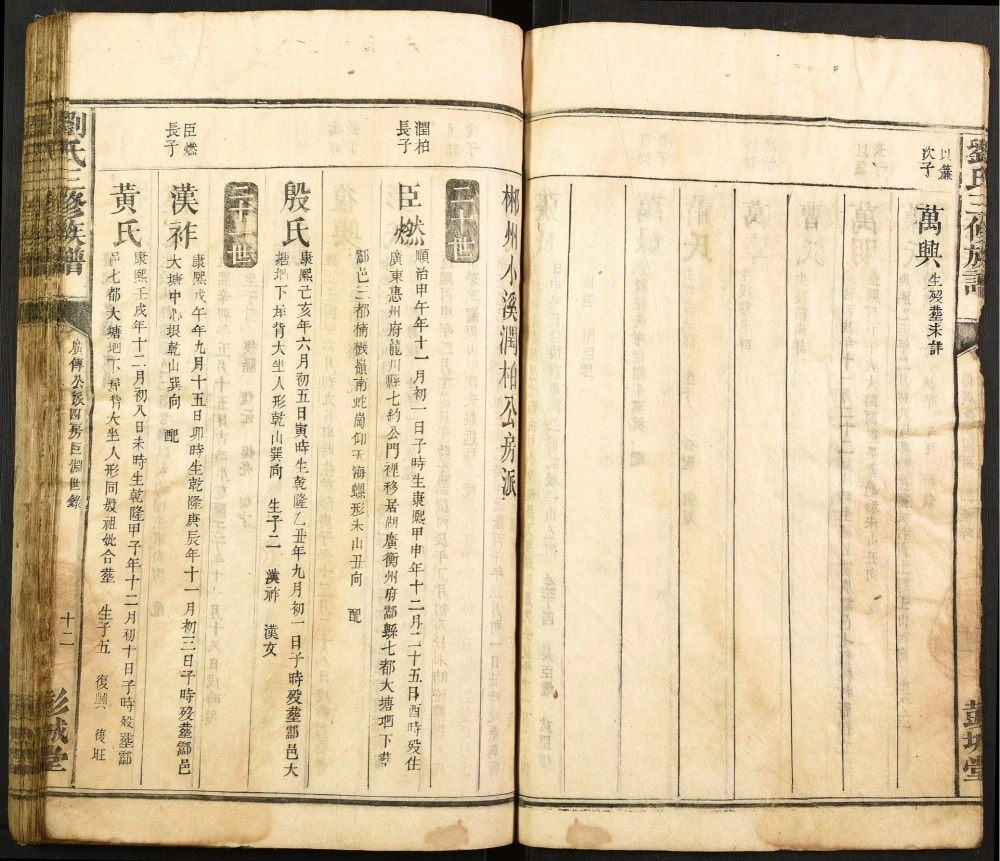 劉氏三修族譜
彭城堂
以簾
次子
萬興
生歿塟未詳
郴州小溪潤柏公房派
二十世
潤柏
長子
臣燃
順治甲午年十一月初一日子時生康熙甲申年十二月二十五日酉時歿住
廣東惠州府龍川縣七約公門裡移居湖廣衡州府酃縣七都大塘垇下塟
酃邑三都楠橃嶺南蛇崗仰天海螺形未山丑向 配
殷氏
康熙己亥年六月初五日寅時生乾隆乙丑年九月初一日子時歿塟酃邑大
塘垇下垾背大坐人形乾山巽向 生子二 漢祚 漢文
二十一世
臣燃
長子
漢祚
康熙戊午年九月十五日卯時生乾隆庚辰年十一月初三日子時歿塟酃邑
大塘中心垠乾山巽向 配
黃氏
康熙壬戌年十二月初入日未時生乾隆甲子年十二月初十日子時歿塟酃
邑七都大塘垇下垾背大坐人形同嫂祖妣合塟 生子五 復興 復旺
劉氏三修族譜
廣傳公派四房臣淵世錄
十二
彭城堂